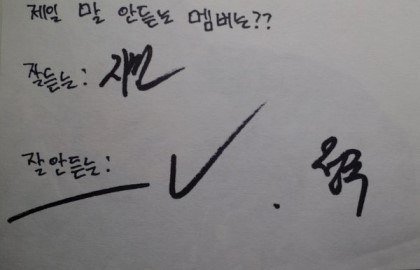 제일 말 안듣는 멤버는??
잘듣는: 재민
잘안듣는: